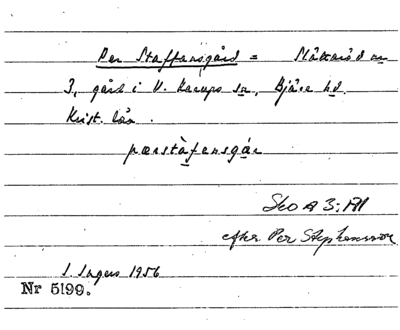 Per Staffansgård =
3, gård i V. Karups sn, Bjäre hd.
Krist. län.
pærstàfensgár
Sko A 3:
efter Per Stephansson
S. Ingers 1956
Nr 5199.